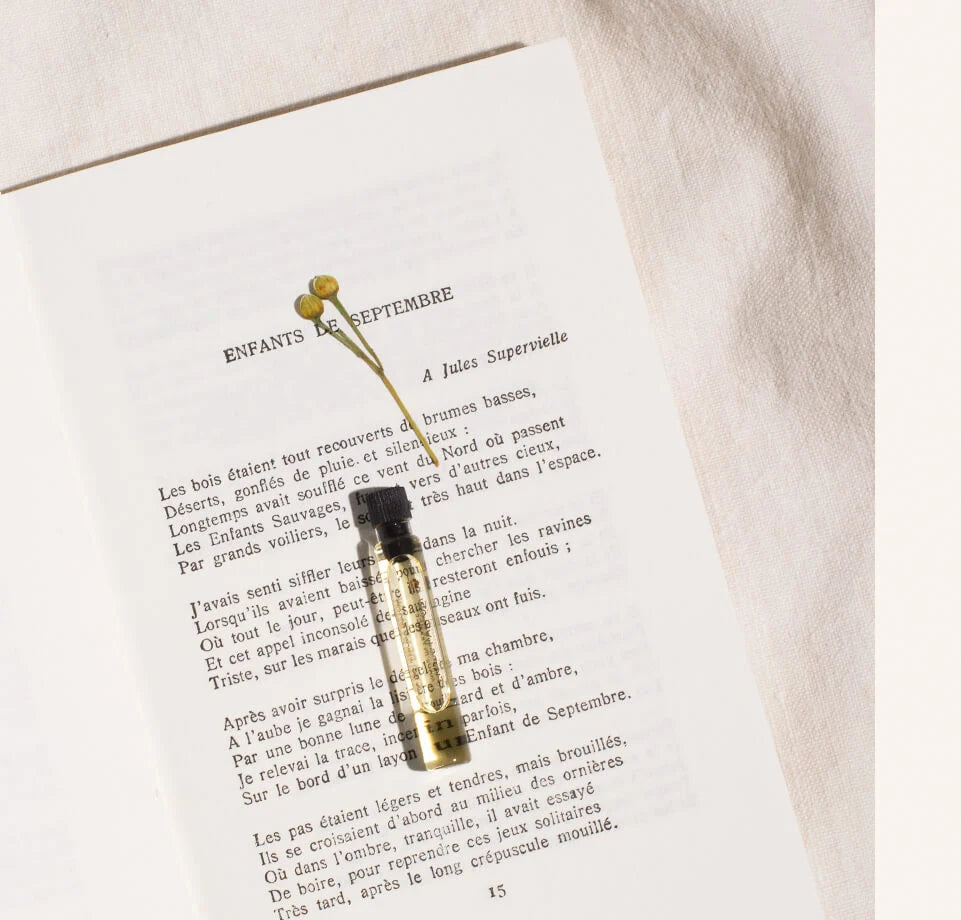 ENFANTS DE SEPTEMBRE
A Jules Supervielle
Les bois étaient tout recouverts de brumes basses,
Déserts, gonflés de pluie et silencieux :
Longtemps avait soufflé ce vent du Nord où passent
Les Enfants Sauvages, vers d'autres cieux,
Par grands voiliers, le très haut dans l'espace.
J'avais senti siffler leurs dans la nuit.
Lorsqu'ils avaient baissé pour chercher les ravines
Où tout le jour, peut-être ils resteront enfouis ;
Et cet appel inconsolé de sauvagine
Triste, sur les marais que des oiseaux ont fuis.
Après avoir surpris le dégel de ma chambre,
A l'aube je gagnai la lisière des bois :
Par une bonne lune de brouillard et d'ambre,
Je relevai la trace, parfois,
Sur le bord d'un layon Enfant de Septembre.
Les pas étaient légers et tendres, mais brouillés,
Ils se croisaient d'abord au milieu des ornières
Où dans l'ombre, tranquille, il avait essayé
De boire, pour reprendre ces jeux solitaires
Très tard, après le long crépuscule mouillé.
15